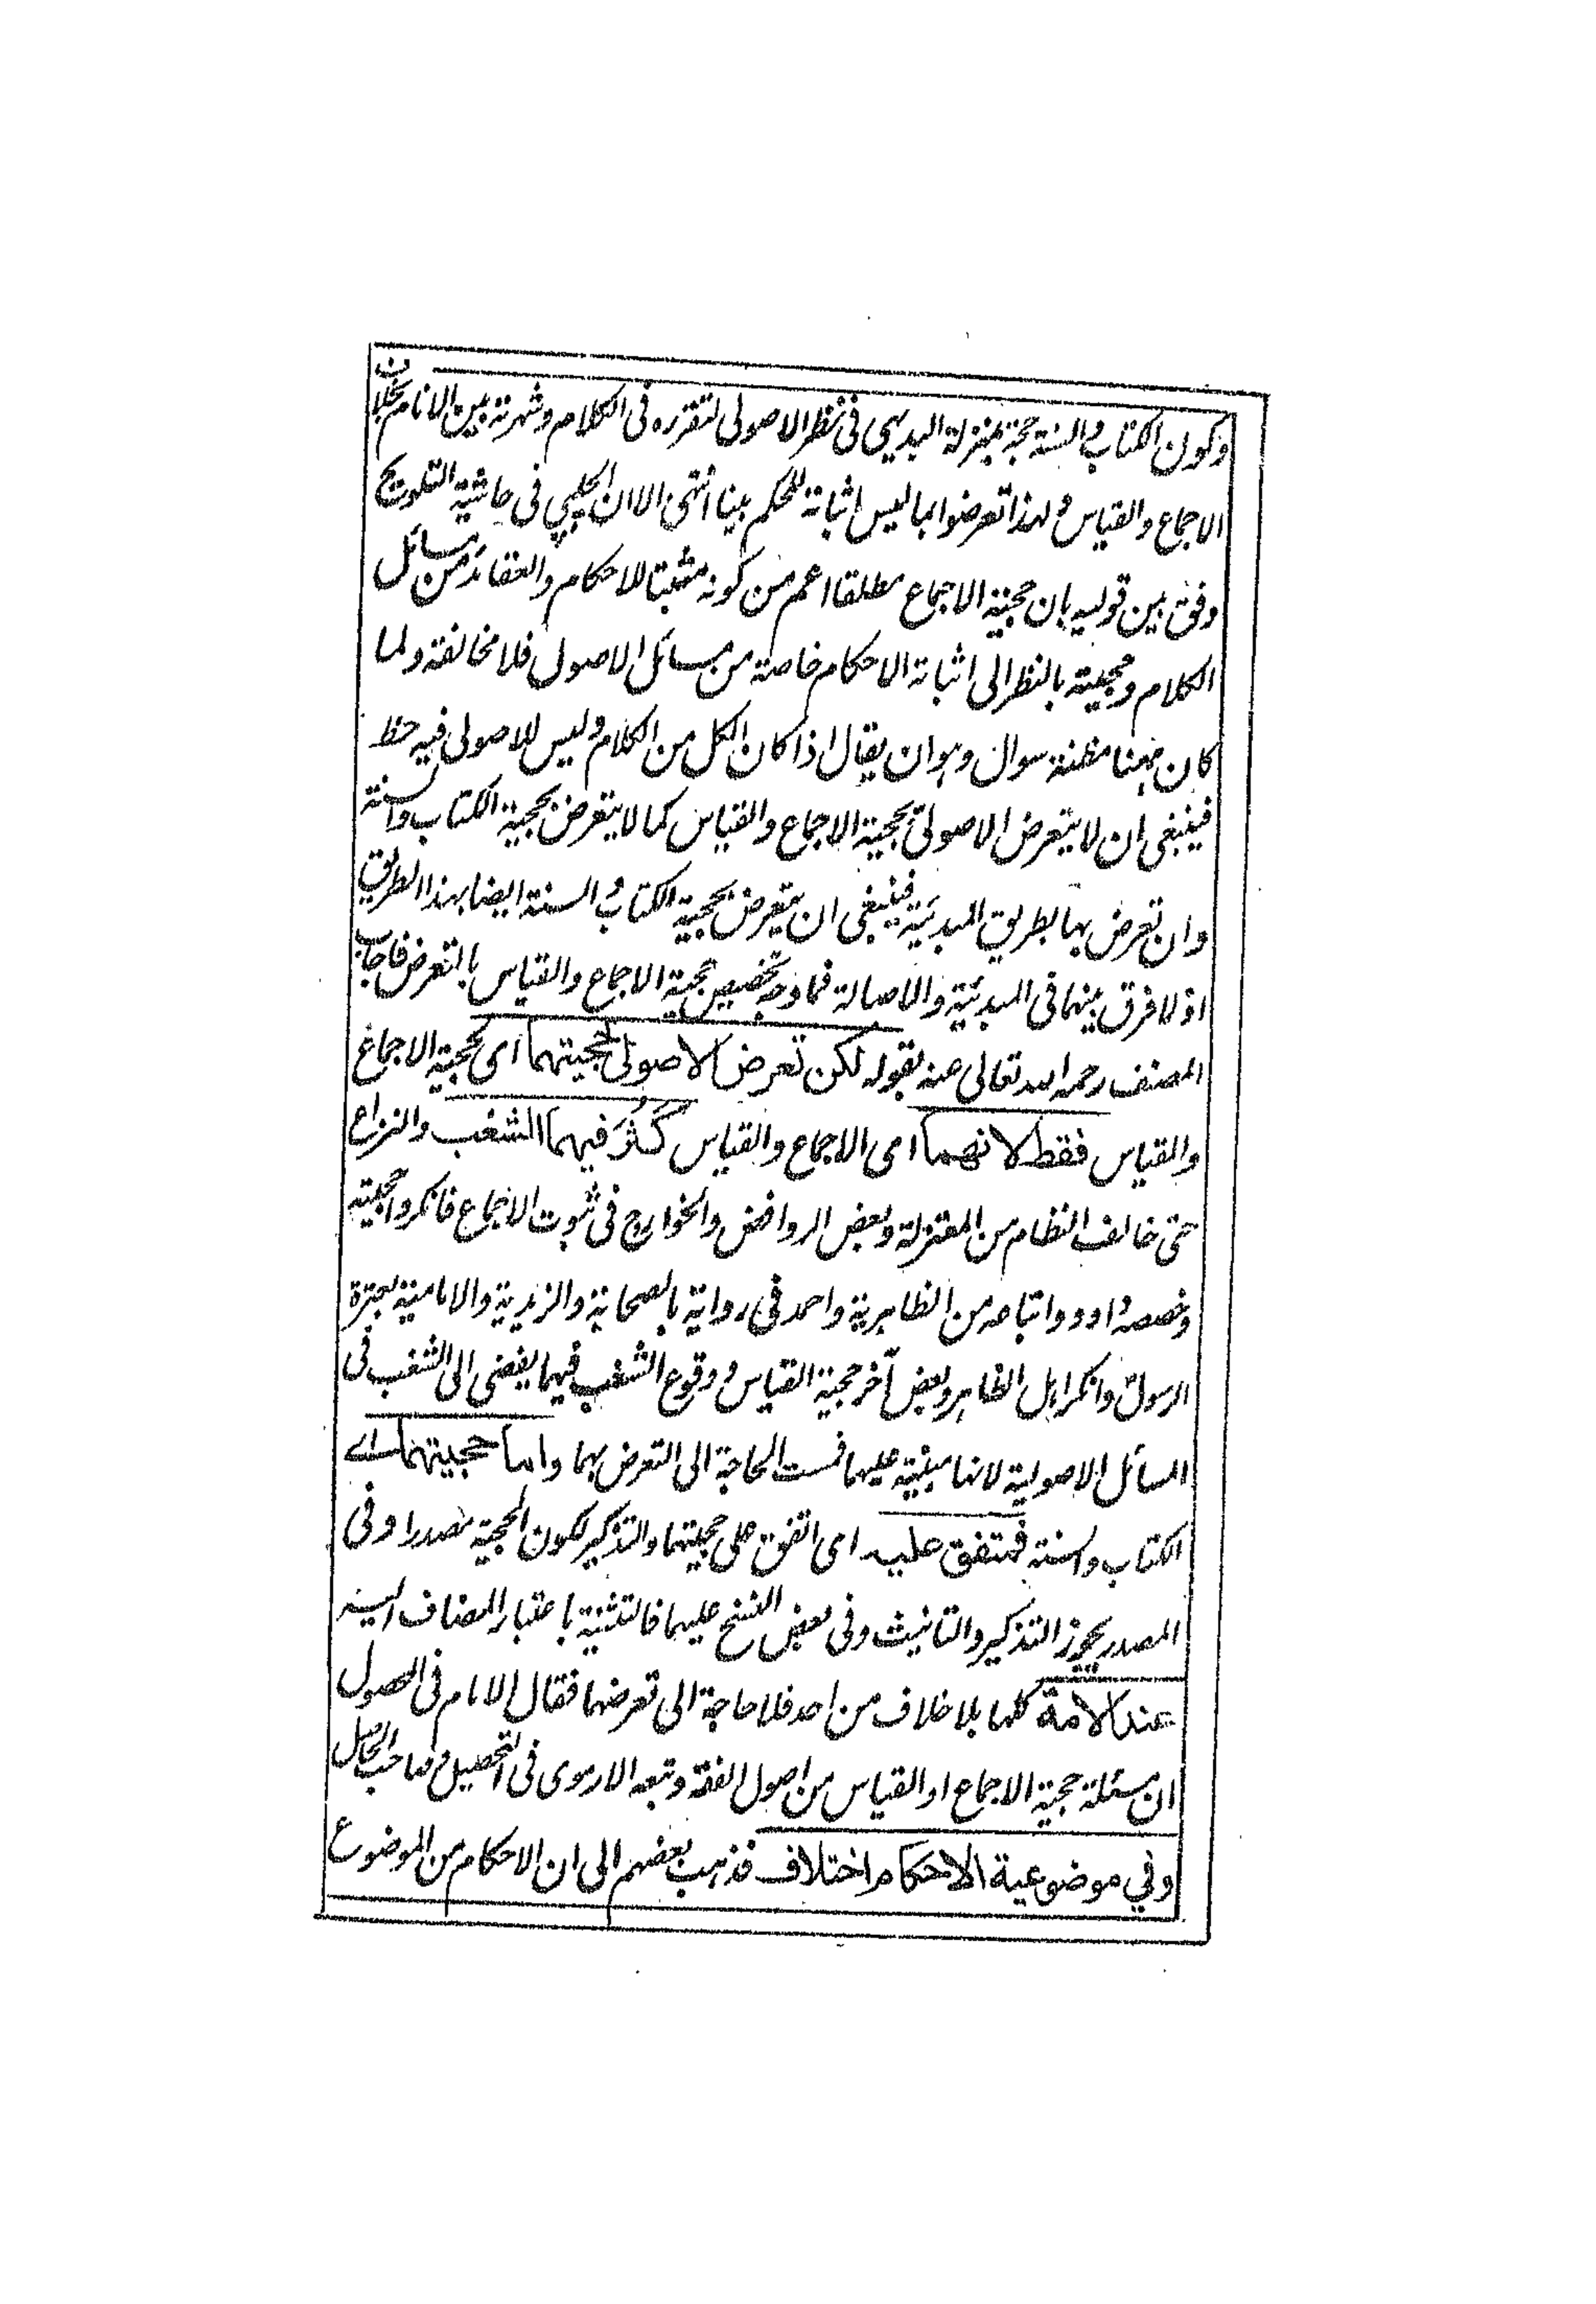 وكون الكتاب والسنة حجة بمنزلة البديهي فى نظر الاصولى لتقرره فى الكلام وشهرته بين الانام بخلاف
الاجماع والقياس ولهذا تعرضوا بما ليس اثباته للحكم بينا انتهى الا ان الچلپي فى حاشية التلويح
وفق بين قوليه بان حجية الاجماع مطلقا اعم من كونه مثبتا للاحكام والعقائد من مسائل
الكلام وحجيته بالنظر الى اثباته الاحكام خاصة من مسائل الاصول فلا مخالفة ولما
كان ههنا مظنة سوال وهو ان يقال اذا كان الكل من الكلام وليس للاصولى فيه حظ
فينبغى ان لا يتعرض الاصولي بحجية الاجماع والقياس كما لا يتعرض بحجية الكتاب والسنة
وان تعرض بها بطريق المبدئية فينبغى ان يتعرض بحجية الكتاب والسنة ايضا بهذا الطريق
اذ لا فرق بينهما فى المبدئية والاصالة فما وجه تخصيص حجية الاجماع والقياس بالتعرض فاجاب
المصنف رحمه الله تعالى عنه بقوله لكن تعرض الاصولى لحجيتهما اى بحجية الاجماع
والقياس فقط لانهما اى الاجماع والقياس كَثُرَ فيهما الشغب والنزاع
حتى خالف النظام من المعتزلة وبعض الروافض والخوارج فى ثبوت الاجماع فانكروا حجيته
وخصصه داود واتباعه من الظاهرية واحمد فى رواية بالصحابة والزيدية والامامية بعترة
الرسول وانكر اهل الظاهر وبعض آخر حجية القياس ووقوع الشغب فيهما يفضى الى الشغب فى
المسائل الاصولية لانها مبنية عليهما فمست الحاجة الى التعرض بهما واما حجيتهما اے
الكتاب والسنة فمتفق عليه اى اتفق على حجيتهما والتذكير لكون الحجية مصدرا وفى
المصدر يجوز التذكير والتانيث وفى بعض النسخ عليهما فالتثنية باعتبار المضاف اليه
عند الامة كلها بلا خلاف من احد فلا حاجة الى تعرضهما فقال الامام فى المحصول
ان مسئلة حجية الاجماع او القياس من اصول الفقه وتبعه الارموى فى التحصيل وصاحب الحاصل
وفي موضوعية الاحكام اختلاف فذهب بعضهم الى ان الاحكام من الموضوع